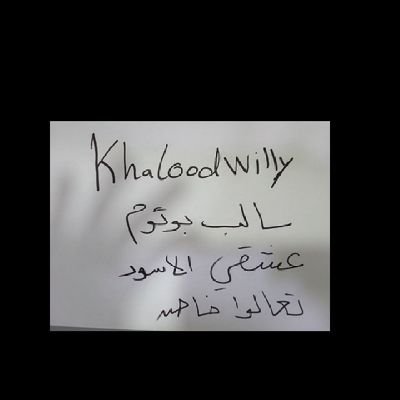 Khaloodwilly
سالب بوتوم
عشقي الاسود
تعالوا خاص